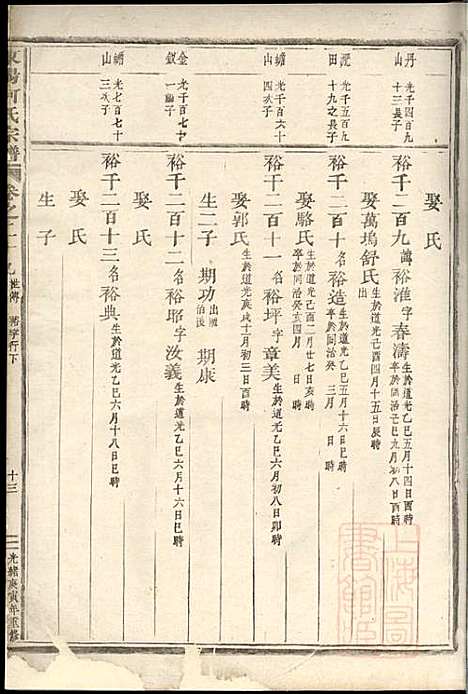 娶氏
丹山 光千四百九十三長子
裕千二百九 諱裕淮字春濤 生於道光乙巳五月十四日酉時 卒於同治己巳九月初八日酉時
娶萬塢舒氏 生於道光己酉四月十五日辰時
出
田 光千五百九十九之長子
裕千二百十 名裕造 生於道光乙巳五月十六日 時 卒於同治癸 三月 日 時
娶駱氏 生於道光己酉二月廿七日亥時 卒於同治癸亥四月
山 光千百六十四次子
裕千二百十一 名裕坪字章美 生於道光乙巳六月初八日卯時
娶郭氏 生於道光庚戌十月初三日酉時
金釵 光千百七十一繼子
裕千二百十二 名裕耶字汝義 生於道光乙巳六月十六日巳時
生二子 期功 出殷治後 期康
山 光七百七十三次子
裕千二百十三 名裕典 生於道光乙巳六月十八日巳時
娶氏
生子
東陽何氏宗譜 卷之二十九 世傳 裕字行下 十三 光緒庚寅年重修
上海圖書館藏